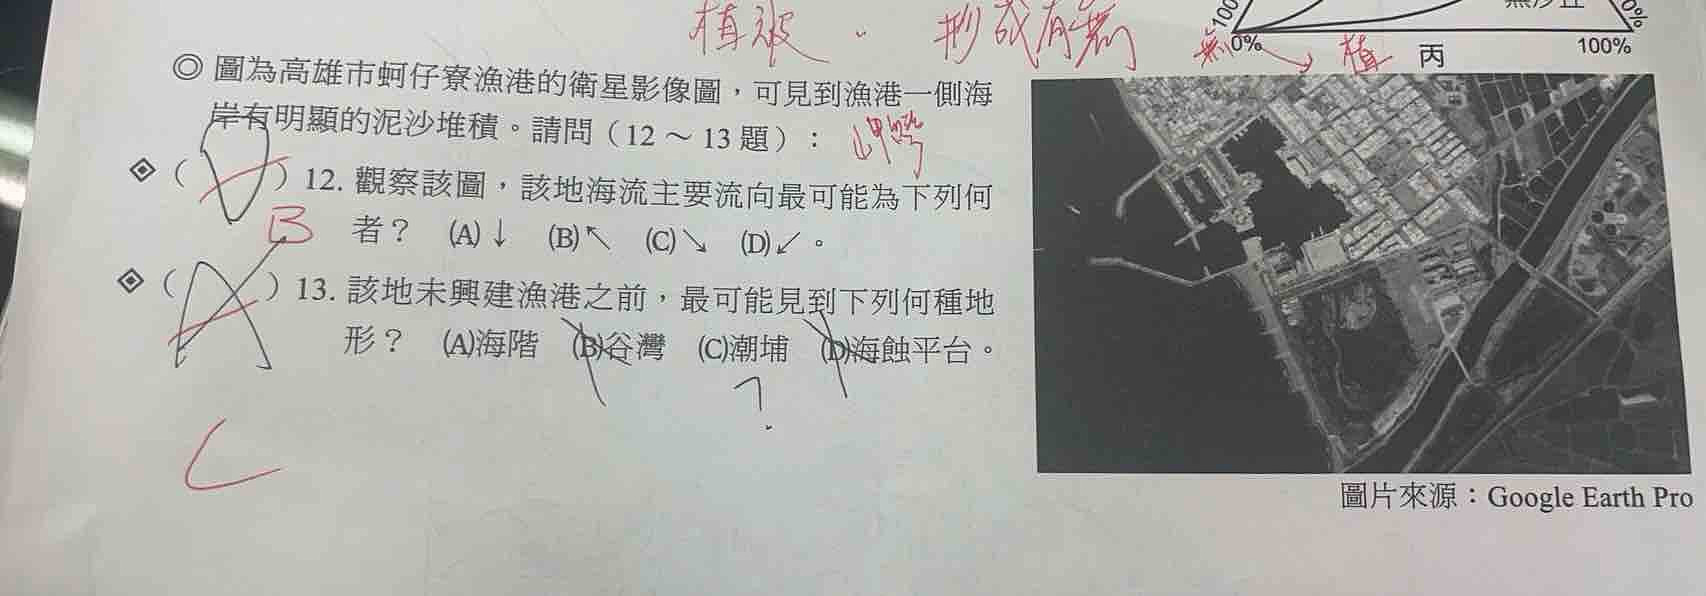 植被 . 形成有無
100
0%
0%
100%
無沙丘
丙
無 植
◎ 圖為高雄市蚵仔寮漁港的衛星影像圖,可見到漁港一側海
岸有明顯的泥沙堆積。請問(12～13題):
(V) 12. 觀察該圖,該地海流主要流向最可能為下列何
B
者? (A)↓ (B)↖ (C)↘ (D)↙。
(A) 13. 該地未興建漁港之前,最可能見到下列何種地
形? (A)海階 (B)谷灣 (C)潮埔 (D)海蝕平台。
?
C
圖片來源:Google Earth Pro